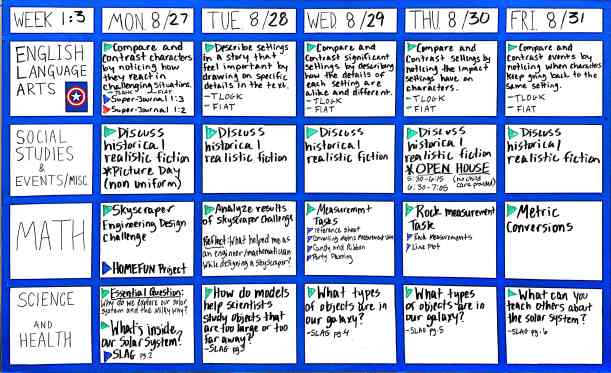 WEEK 1:3
MON 8/27
TUE 8/28
WED 8/29
THU 8/30
FRI 8/31
ENGLISH
LANGUAGE
ARTS
Compare and
contrast characters
by noticing how
they react in
challenging situations.
-TLOGK -FIAT
Super-Journal 1:3
Super-Journal 1:2
Describe settings
in a story that
feel important by
drawing on specific
details in the text.
-TLOGK
-FIAT
Compare and
contrast significant
settings by describing
how the details of
each setting are
alike and different.
-TLOGK
-FIAT
Compare and
contrast settings by
noticing the impact
settings have on
characters.
-TLOGK
-FIAT
Compare and
contrast events by
noticing when characters
keep going back to the
same setting.
-TLOGK
-FIAT
SOCIAL
STUDIES
&
EVENTS/MISC
Discuss
historical
realistic fiction
*Picture Day
(non uniform)
Discuss
historical
realistic fiction
Discuss
historical
realistic fiction
Discuss
historical
realistic fiction
*OPEN HOUSE
5:30-6:15 (no child
6:30-7:05 care provided)
Discuss
historical
realistic fiction
MATH
Skyscraper
Engineering Design
Challenge
HOMEFUN Project
Analyze results
of Skyscraper Challenge
Reflect: What helped me as
an engineer/mathematician
while designing a skyscraper?
Measurement
Tasks
reference sheet
Converting metric measurement
Candy and Ribbon
Party Planning
Rock measurement
Task
Rock Measurements
Line Plot
Metric
Conversions
SCIENCE
AND
HEALTH
Essential Question:
Why do we explore our solar
system and the Milky Way?
What's inside
our Solar System?
SLAG pg.2
How do models
help scientists
study objects that
are too large or too
far away?
-SLAG pg.3
What types
of objects are in
our galaxy?
-SLAG pg.4
What types
of objects are in
our galaxy?
-SLAG pg.5
What can you
teach others about
the solar system?
-SLAG pg.6